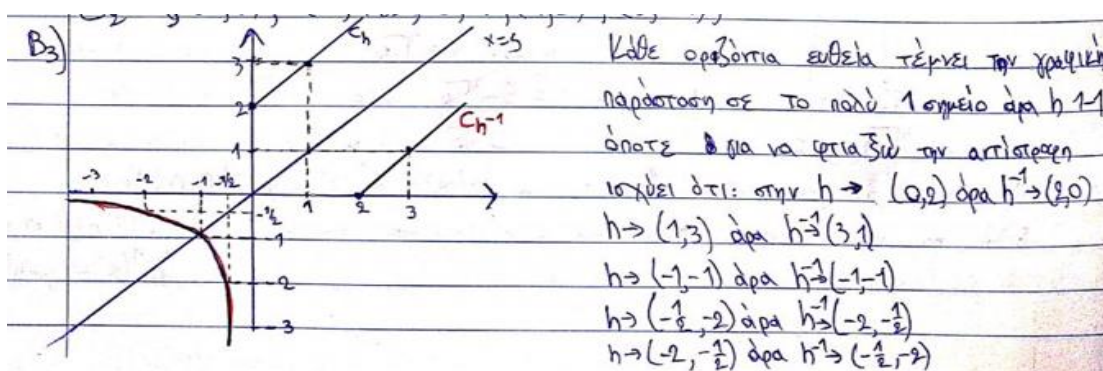 B3)
Ch
x=y
3
2
1
Ch⁻¹
-3 -2 -1 -1/2
1 2 3
-1/2
-1
-2
-3
Κάθε οριζόντια ευθεία τέμνει την γραφική
παράσταση σε το πολύ 1 σημείο άρα h 1-1
όποτε για να φτιάξω την αντίστροφη
ισχύει ότι: στην h → (0,2) άρα h⁻¹→(2,0)
h→ (1,3) άρα h⁻¹→(3,1)
h→ (-1,-1) άρα h⁻¹→(-1,-1)
h→ (-1/2,-2) άρα h⁻¹→(-2,-1/2)
h→(-2,-1/2) άρα h⁻¹→(-1/2,-2)